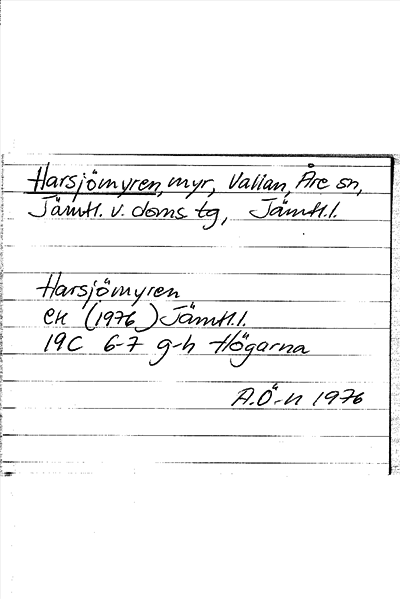 Harsjömyren, myr, Vallan, Åre sn,
Jämtl. v. doms tg, Jämtl.l.
Harsjömyren
ek (1976) Jämtl.l.
19C 6-7 g-h Högarna
A.Ö-n 1976